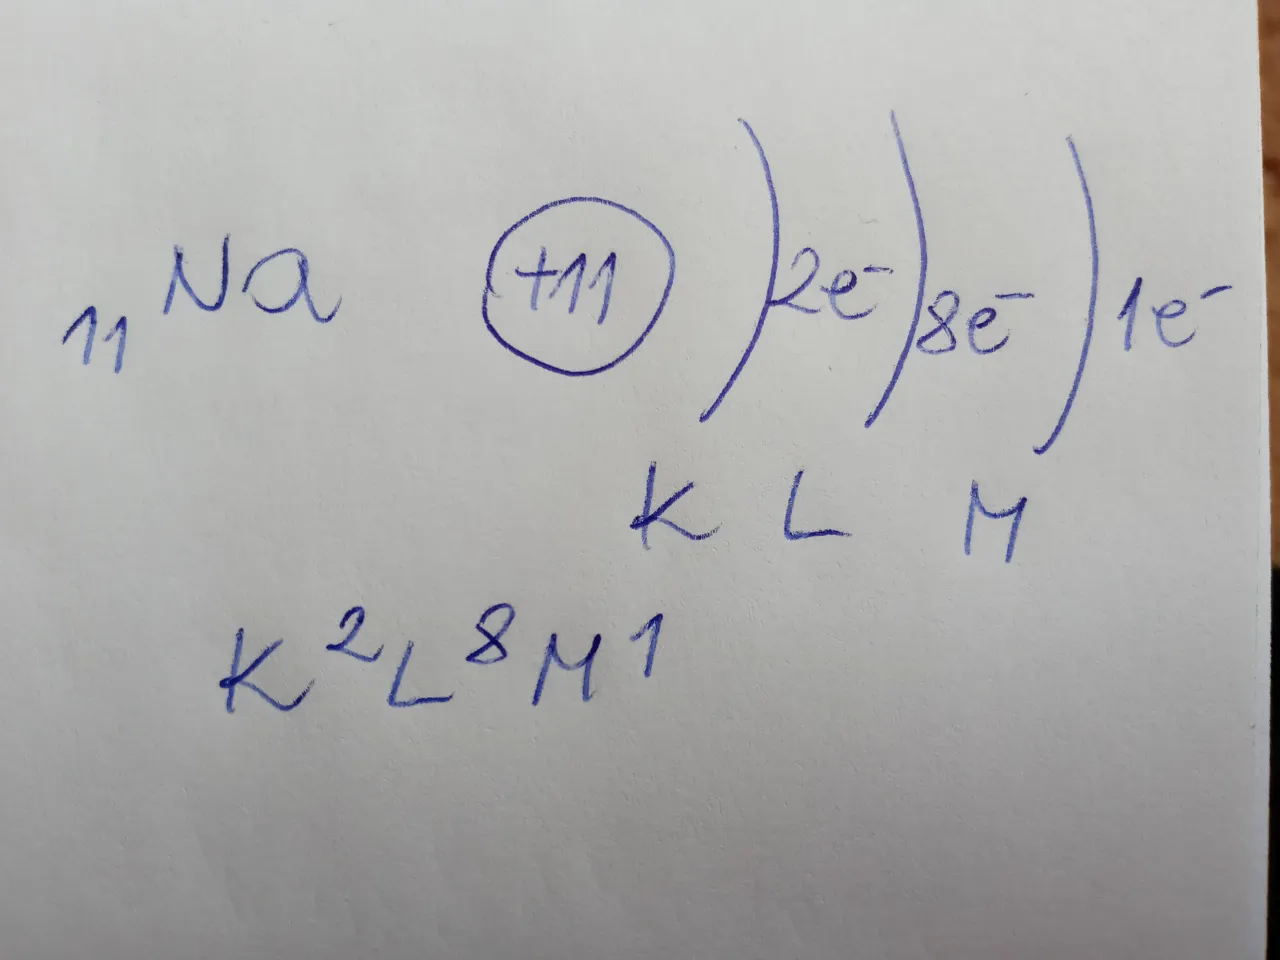 ₁₁Na +11 )2e⁻ )8e⁻ )1e⁻
K L M
K²L⁸M¹